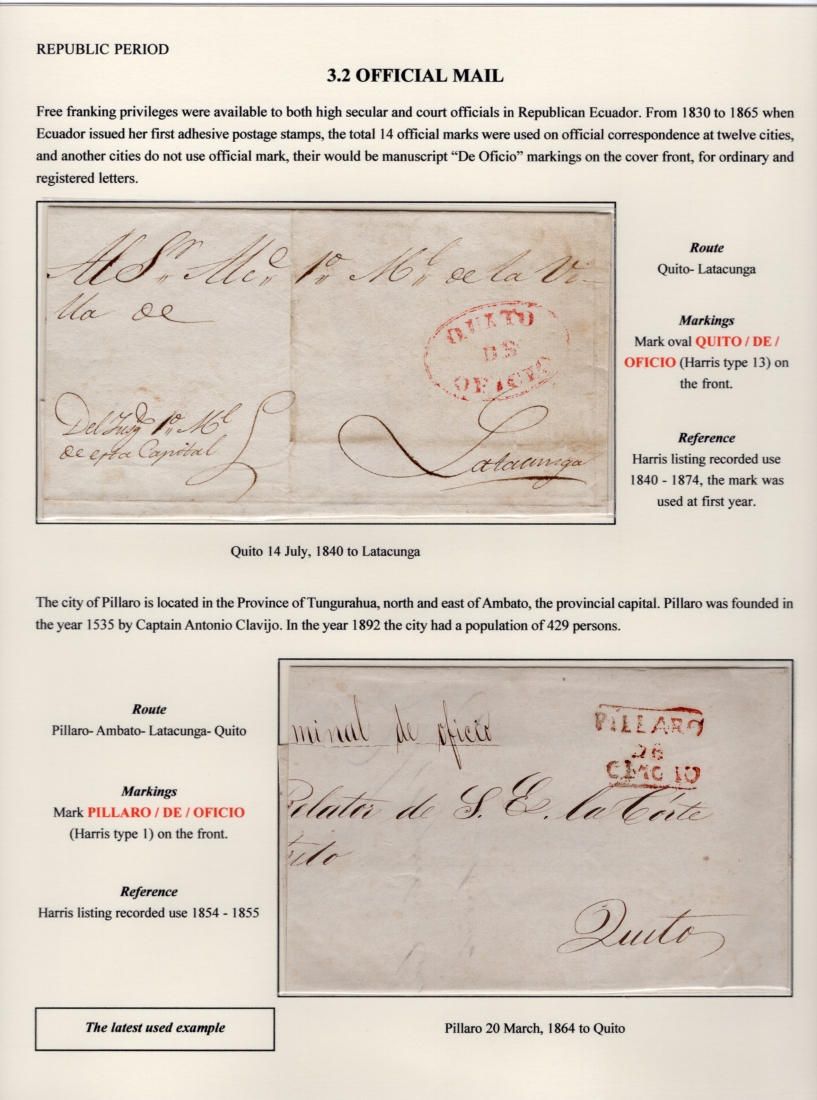 REPUBLIC PERIOD
3.2 OFFICIAL MAIL
Free franking privileges were available to both high secular and court officials in Republican Ecuador. From 1830 to 1865 when
Ecuador issued her first adhesive postage stamps, the total 14 official marks were used on official correspondence at twelve cities,
and another cities do not use official mark, their would be manuscript “De Oficio” markings on the cover front, for ordinary and
registered letters.
Al Sr. Alcd. 1o. Ml. de la Vi-
lla de
QUITO
DE
OFICIO
Del Juzgo. 1o. Ml.
de esta Capital
Latacunga
Route
Quito- Latacunga
Markings
Mark oval QUITO / DE /
OFICIO (Harris type 13) on
the front.
Reference
Harris listing recorded use
1840 - 1874, the mark was
used at first year.
Quito 14 July, 1840 to Latacunga
The city of Pillaro is located in the Province of Tungurahua, north and east of Ambato, the provincial capital. Pillaro was founded in
the year 1535 by Captain Antonio Clavijo. In the year 1892 the city had a population of 429 persons.
Route
Pillaro- Ambato- Latacunga- Quito
Markings
Mark PILLARO / DE / OFICIO
(Harris type 1) on the front.
Reference
Harris listing recorded use 1854 - 1855
The latest used example
minal de oficio
PILLARO
DE
OFICIO
Relator de S. E. la Córte
Quito
Pillaro 20 March, 1864 to Quito